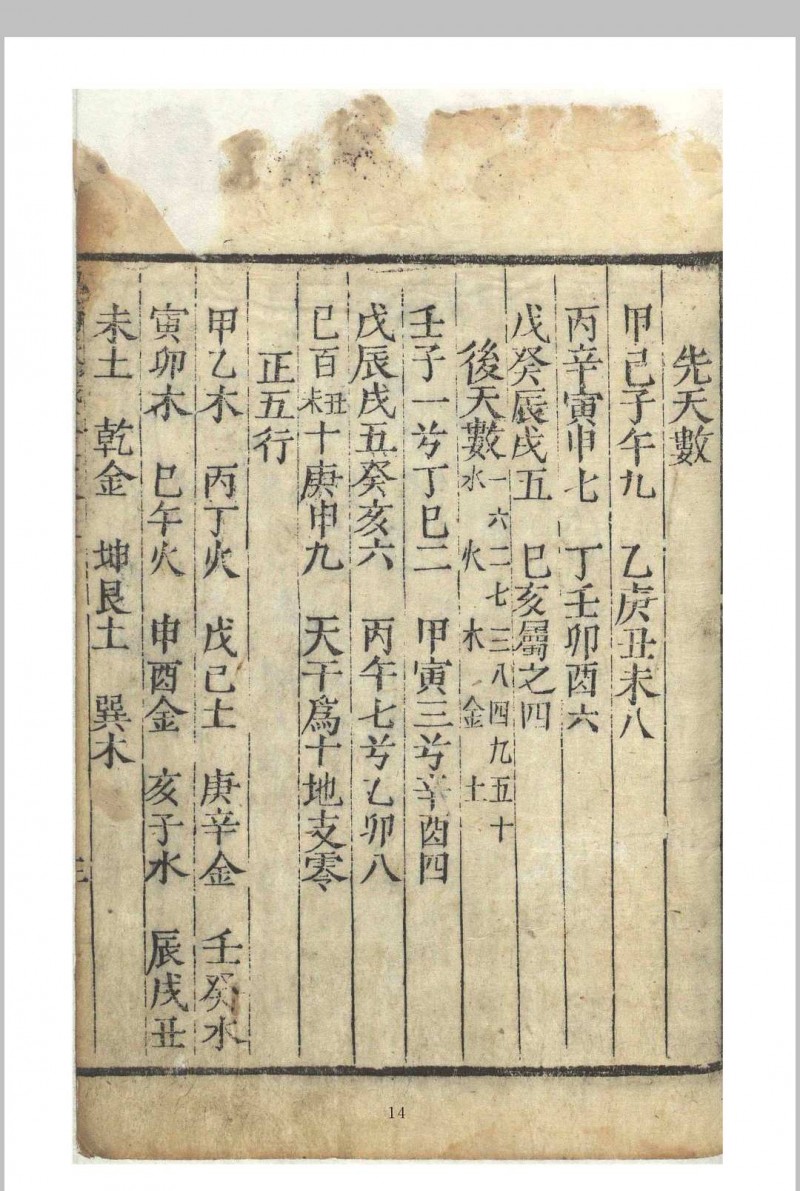 先天數
甲己子午九　乙庚丑未八
丙辛寅申七　丁壬卯酉六
戊癸辰戌五　巳亥屬之四
後天數 一六水 二七火 三八木 四九金 五十土
壬子一兮丁巳二　甲寅三兮辛酉四
戊辰戌五癸亥六　丙午七兮乙卯八
己百丑未十庚申九　天干爲十地支零
正五行
甲乙木　丙丁火　戊己土　庚辛金　壬癸水
寅卯木　巳午火　申酉金　亥子水　辰戌丑
未土　乾金　坤艮土　巽木
14